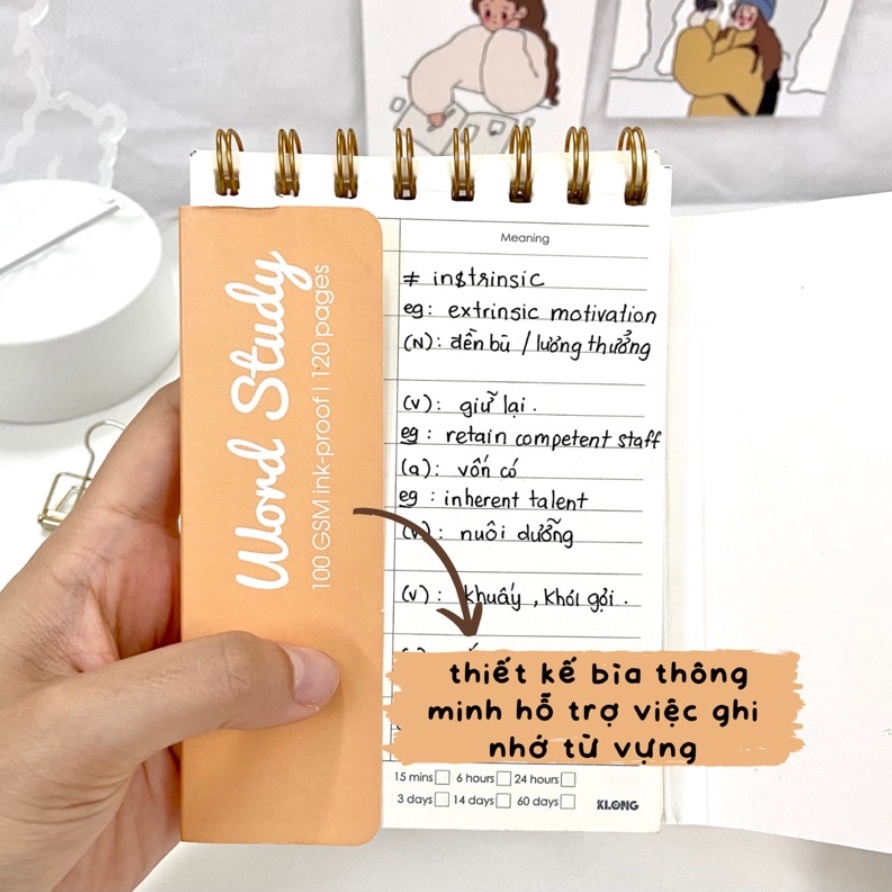 Word Study
100 GSM ink-proof | 120 pages
Meaning
≠ instrinsic
eg: extrinsic motivation
(N): đền bù / lương thưởng
(v): giữ lại.
eg: retain competent staff
(a): vốn có
eg: inherent talent
(v): nuôi dưỡng
(v): khuấy, khơi gợi.
thiết kế bìa thông
minh hỗ trợ việc ghi
nhớ từ vựng
15 mins 6 hours 24 hours
3 days 14 days 60 days
KLONG